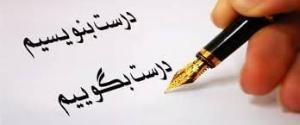 درست بنویسیم
درست بگوییم